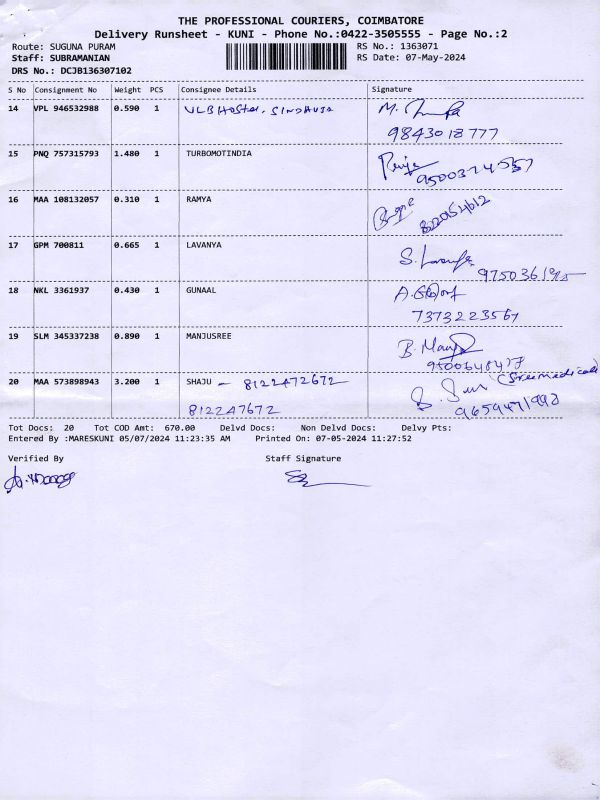 THE PROFESSIONAL COURIERS, COIMBATORE
Delivery Runsheet - KUNI - Phone No.:0422-3505555 - Page No.:2
Route: SUGUNA PURAM RS No.: 1363071
Staff: SUBRAMANIAN RS Date: 07-May-2024
DRS No.: DCJB136307102
S No Consignment No Weight PCS Consignee Details Signature
14 VPL 946532988 0.590 1 VLB Hostel, SINDHUJA M.
9843018777
15 PNQ 757315793 1.480 1 TURBOMOTINDIA Priya
16 MAA 108132057 0.310 1 RAMYA
17 GPM 700811 0.665 1 LAVANYA S. Lavanya
18 NKL 3361937 0.430 1 GUNAAL
7373223567
19 SLM 345337238 0.890 1 MANJUSREE B.
20 MAA 573898943 3.200 1 SHAJU - 8122472672 (Sree medical)
812247672 9659471992
Tot Docs: 20 Tot COD Amt: 670.00 Delvd Docs: Non Delvd Docs: Delvy Pts:
Entered By :MARESKUNI 05/07/2024 11:23:35 AM Printed On: 07-05-2024 11:27:52
Verified By Staff Signature